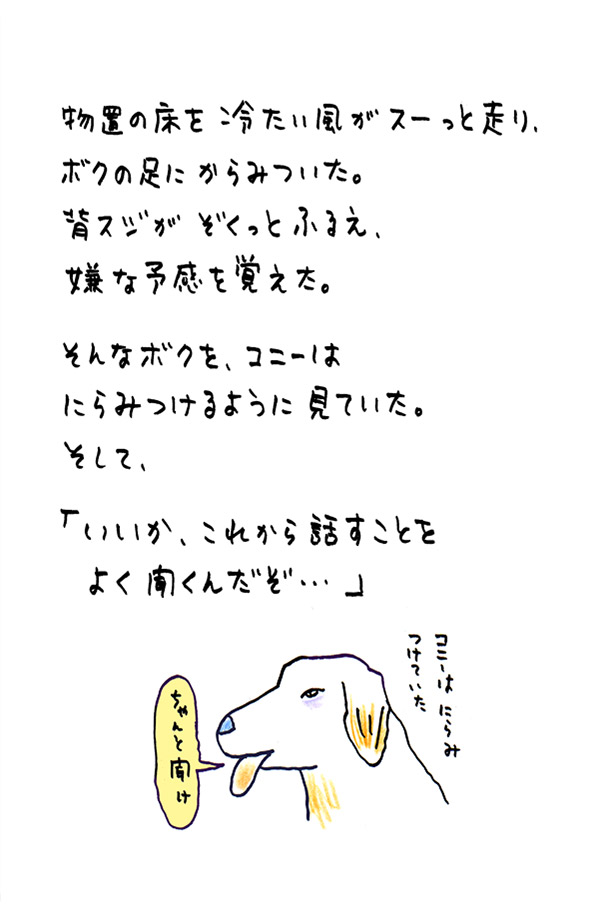 物置の床を 冷たい風がスーっと走り、
ボクの足に からみついた。
背スジが ぞくっとふるえ、
嫌な予感を覚えた。
そんなボクを、コニーは
にらみつけるように 見ていた。
そして、
「いいか、これから話すことを
よく聞くんだぞ・・・」
コニーは にらみ
つけていた
ちゃんと聞け